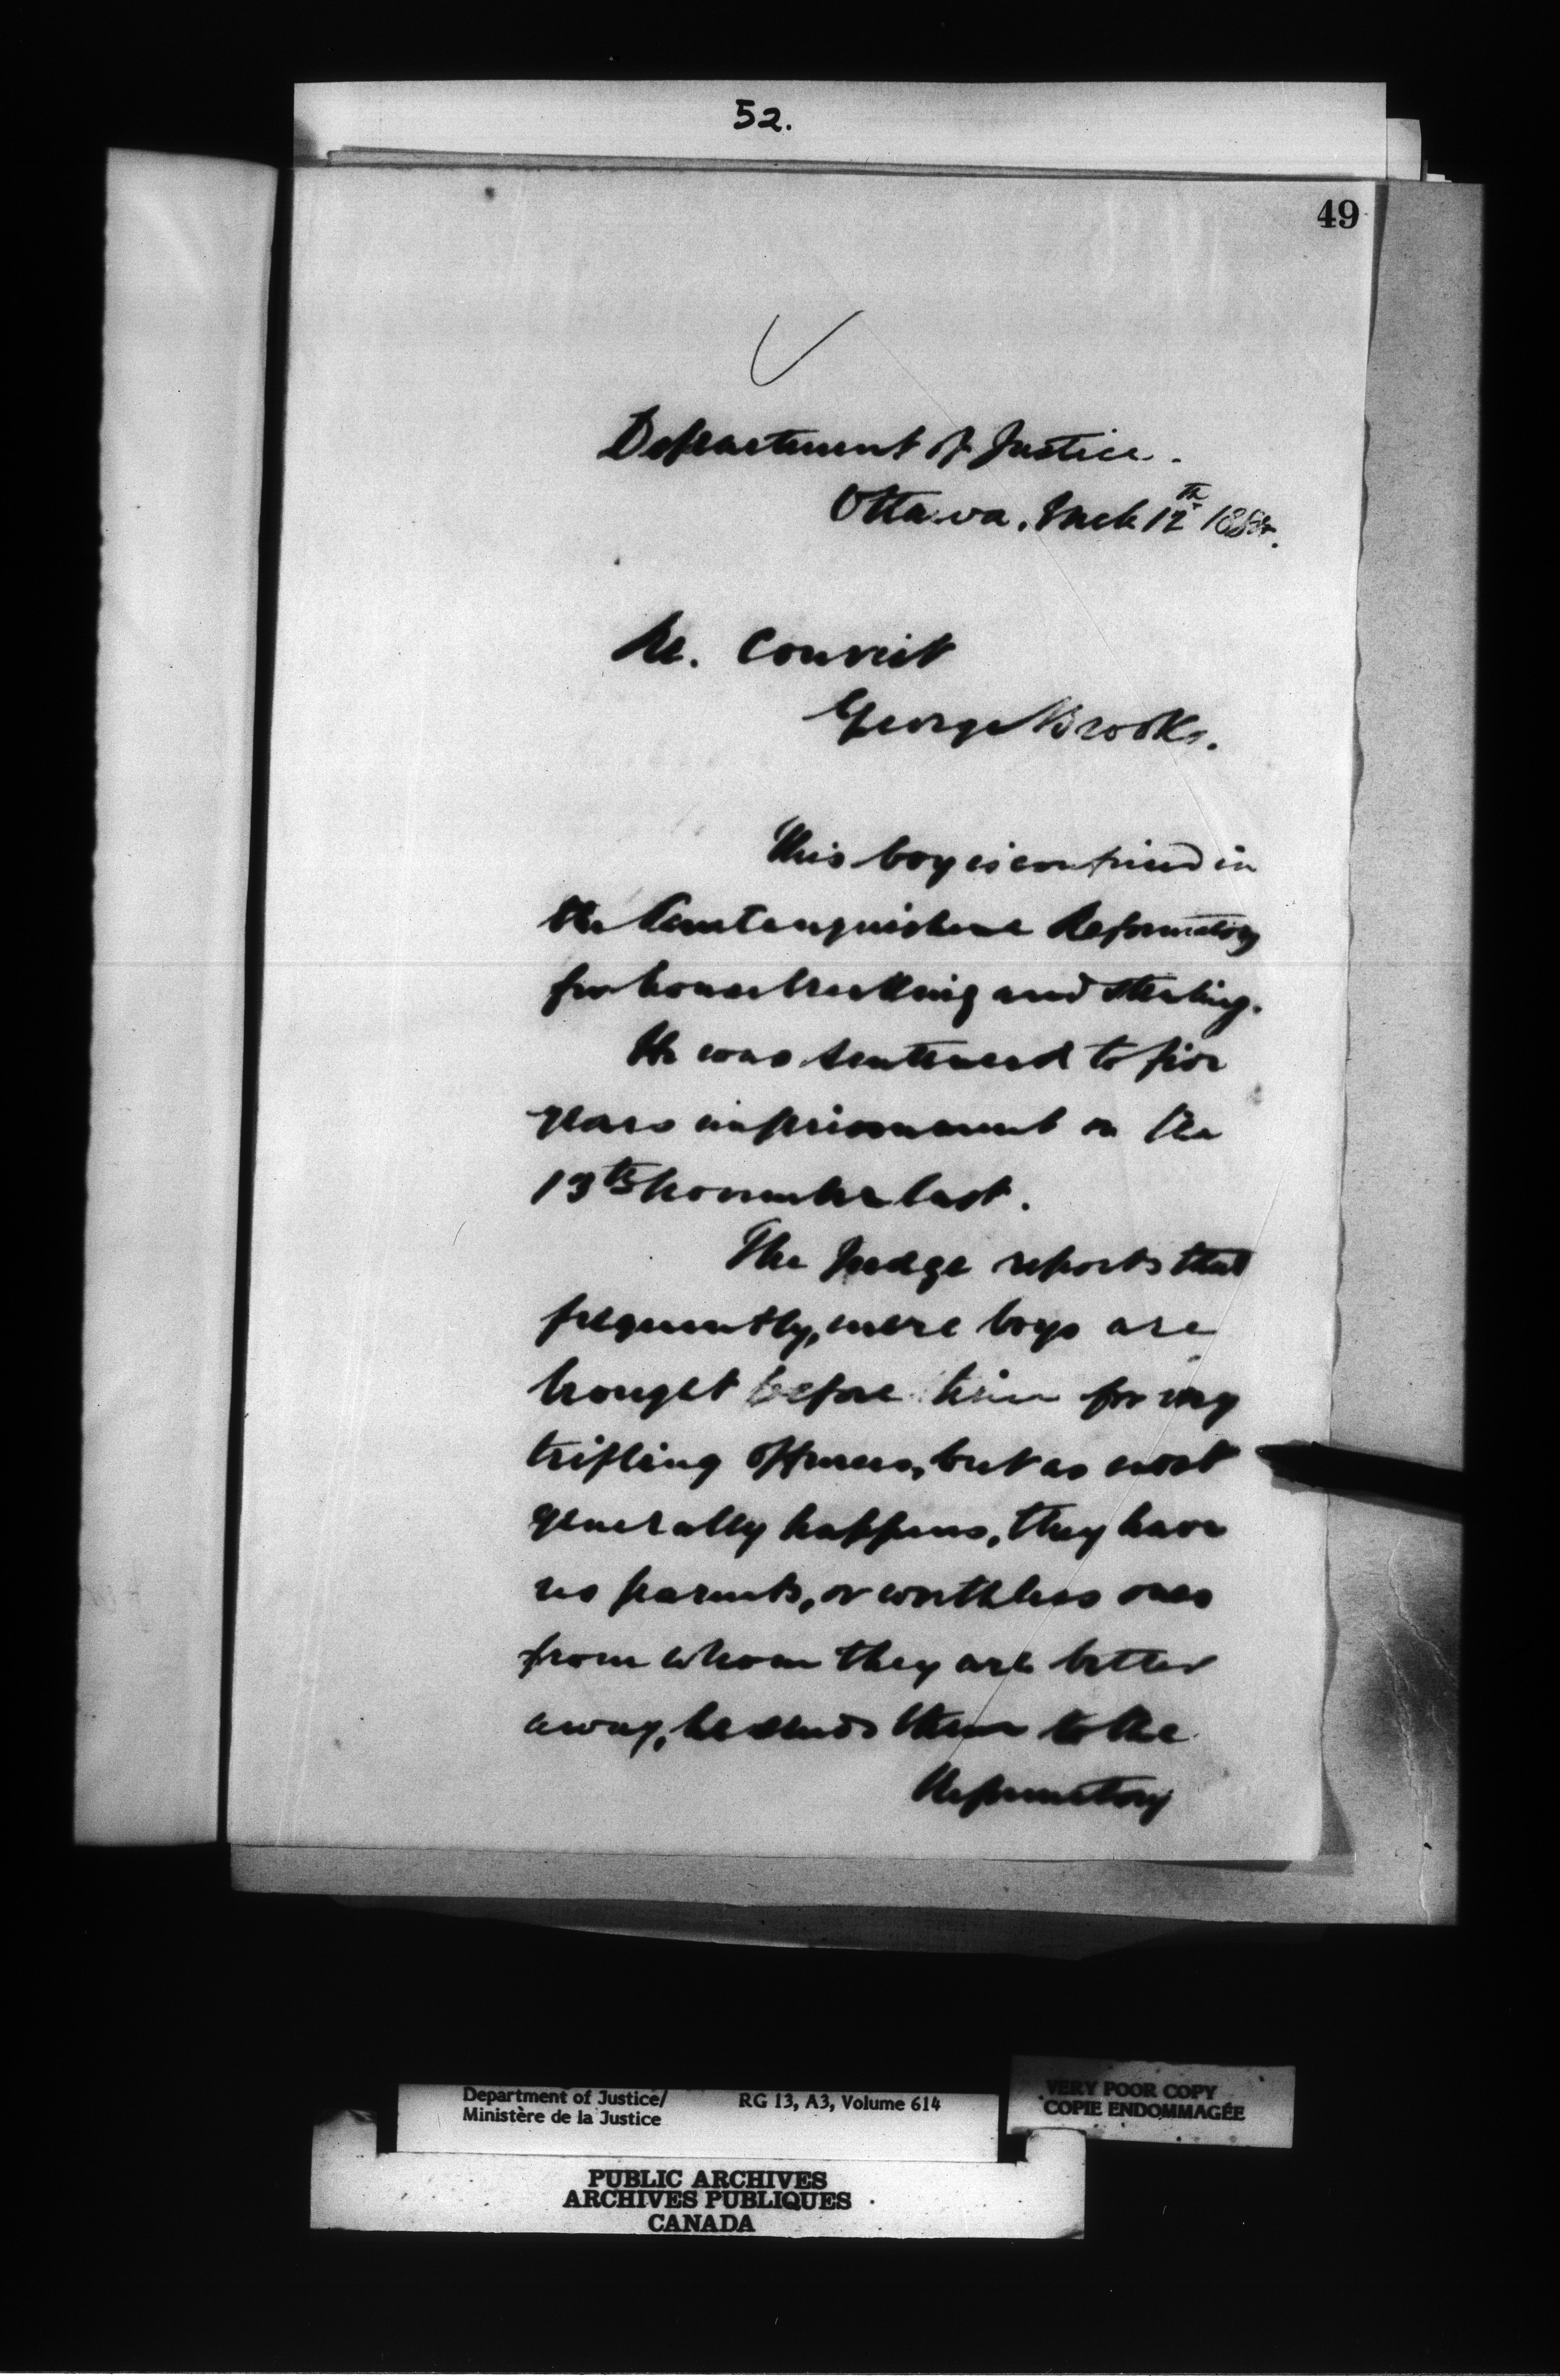 52.
49
Department of Justice.
Ottawa. Mch 12th 188
Re. Convict
George Brooks.
This boy is confined in
the Penetanguishene Reformatory
for housebreaking and stealing.
He was sentenced to five
years imprisonment on the
13th November last.
The Judge reports that
frequently, mere boys are
brought before him for very
trifling offences, but as most
generally happens, they have
no parents, or worthless ones
from whom they are better
away, he sends them to the
Reformatory
Department of Justice/ RG 13, A3, Volume 614
Ministère de la Justice
VERY POOR COPY
COPIE ENDOMMAGÉE
PUBLIC ARCHIVES
ARCHIVES PUBLIQUES
CANADA